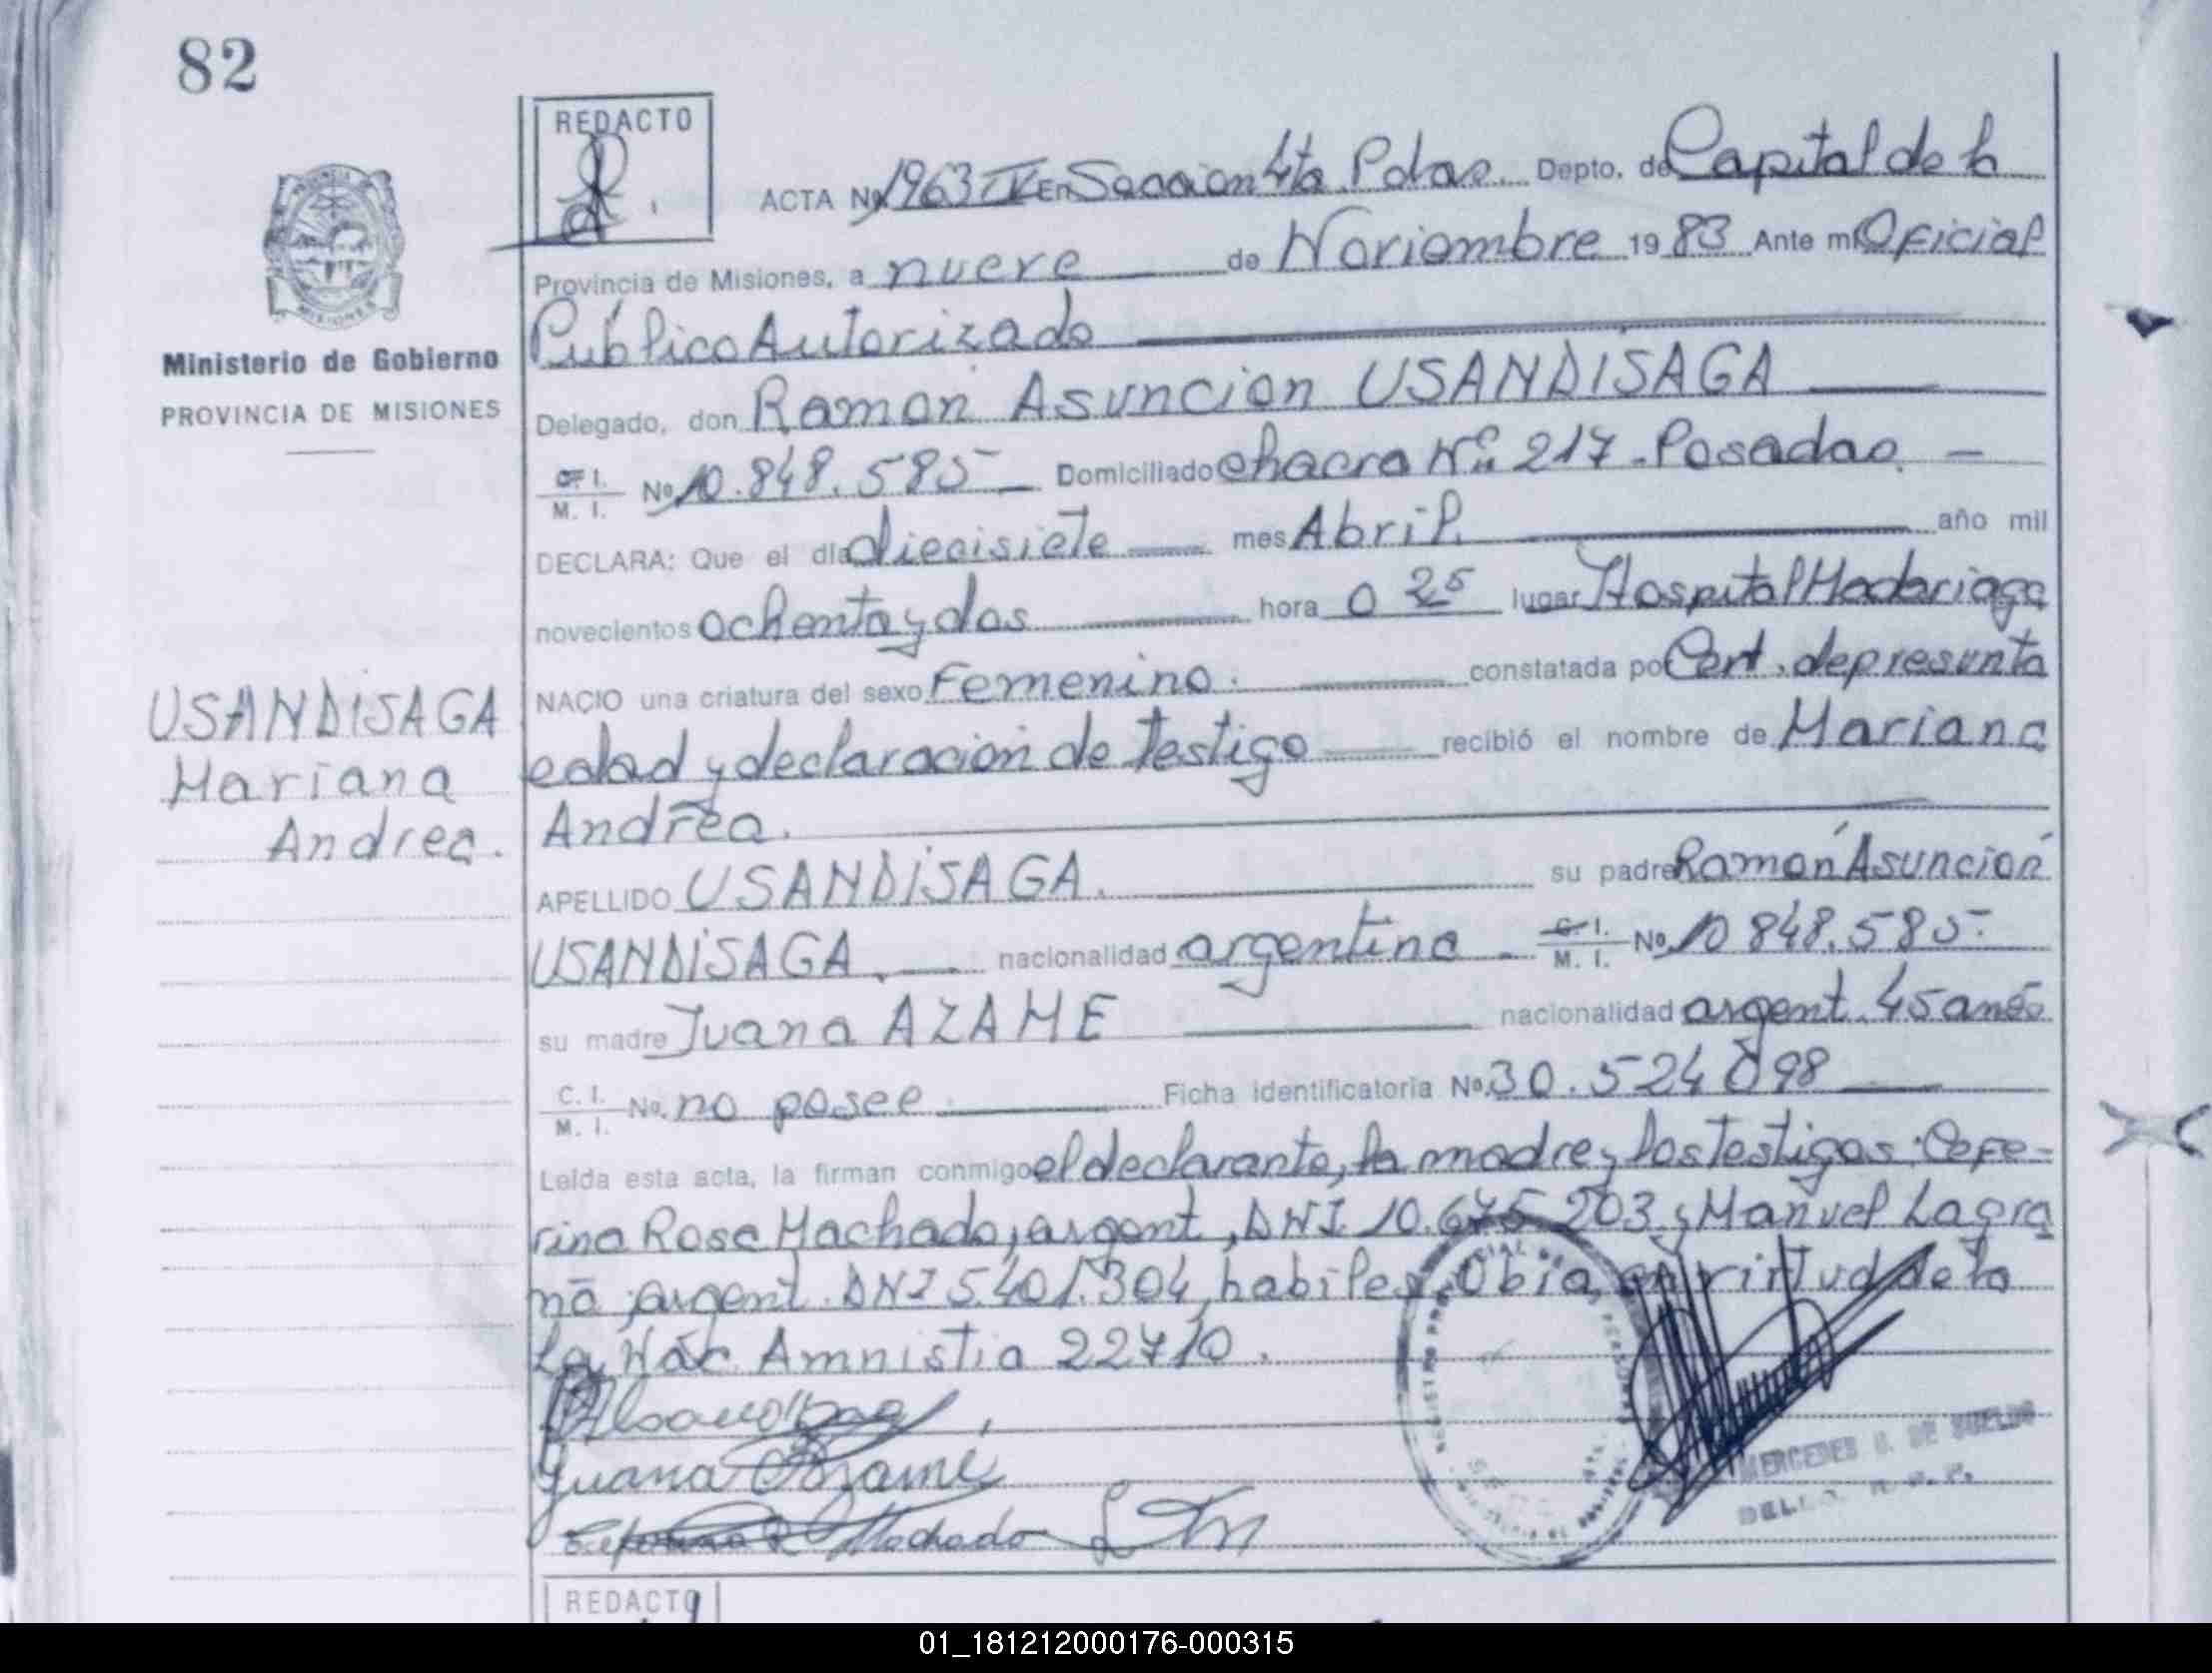 82
REDACTO
ACTA No 1963 IV En Seccion 4ta Pdas. Depto. de Capital de la
Provincia de Misiones, a nueve de Noviembre 1983 Ante mi Oficial
Público Autorizado
Ministerio de Gobierno
PROVINCIA DE MISIONES
Delegado, don Ramón Asunción USANDISAGA
C. I. M. I. No 10.848.585 Domiciliado chacra Nº 217 - Posadas. —
DECLARA: Que el día diecisiete mes Abril. año mil
novecientos ochenta y dos hora 0 25 lugar Hospital Madariaga
NACIO una criatura del sexo Femenino. constatada por Cert. de presunta
USANDISAGA
Mariana
Andrea.
edad y declaración de testigo recibió el nombre de Mariana
Andrea.
APELLIDO USANDISAGA. su padre Ramón Asunción
USANDISAGA. nacionalidad argentina - C. I. M. I. No 10.848.585.
su madre Juana AZAME nacionalidad argent. 45 años
C. I. M. I. No. no posee Ficha identificatoria No. 30.524.098
Leída esta acta, la firman conmigo el declarante, la madre y los testigos: Cefe-
rina Rosa Machado, argent, DNI 10.675.203 y Manuel Lagra
ma argent. DNI 5.401.304, habiles, Obra en virtud de la
Ley Nac. Amnistia 22710.
Juana Azame
R Machado
MERCEDES
REDACTO
01_181212000176-000315